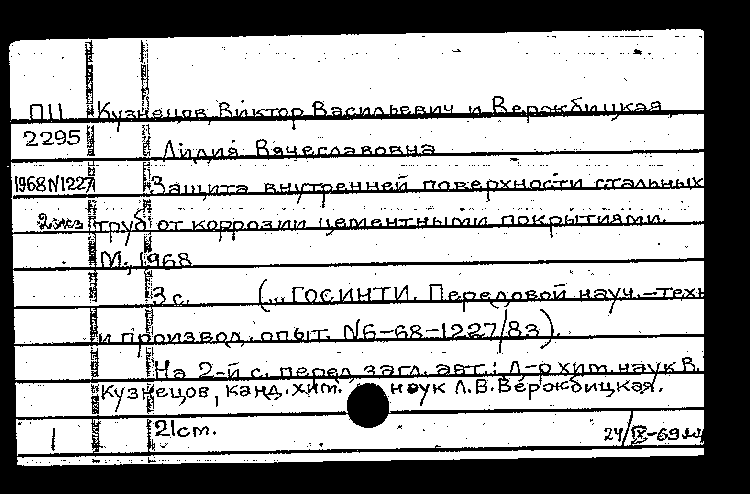 П11 Кузнецов, Виктор Васильевич и Вержбицкая,
2295 Лидия Вячеславовна
1968N1227 Защита внутренней поверхности стальных
2экз труб от коррозии цементными покрытиями.
М., 1968
3 с. (... ГОСИНТИ. Передовой науч.-техн
и производ. опыт. N6-68-1227/83).
На 2-й с. перед загл. авт.: Д-р хим. наук В.
Кузнецов, канд. хим. наук Л.В. Вержбицкая.
1 21см. 24/IX-69